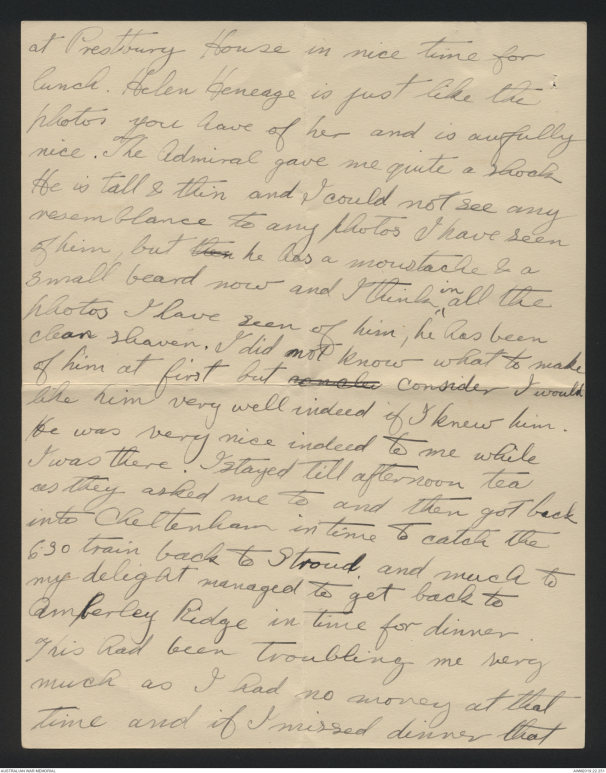 at Prestbury House in nice time for
lunch. Helen Heneage is just like the
photos you have of her and is awfully
nice. The Admiral gave me quite a shock
He is tall & thin and I could not see any
resemblance to any photos I have seen
of him, but then he has a moustache & a
small beard now and I think in all the
photos I have seen of him, he has been
clean shaven. I did not know what to make
of him at first but consider I would
like him very well indeed if I knew him.
He was very nice indeed to me while
I was there. I stayed till afternoon tea
as they asked me to and then got back
into Cheltenham in time to catch the
6.30 train back to Stroud and much to
my delight managed to get back to
Amberley Ridge in time for dinner.
This had been troubling me very
much as I had no money at that
time and if I missed dinner that
AUSTRALIAN WAR MEMORIAL